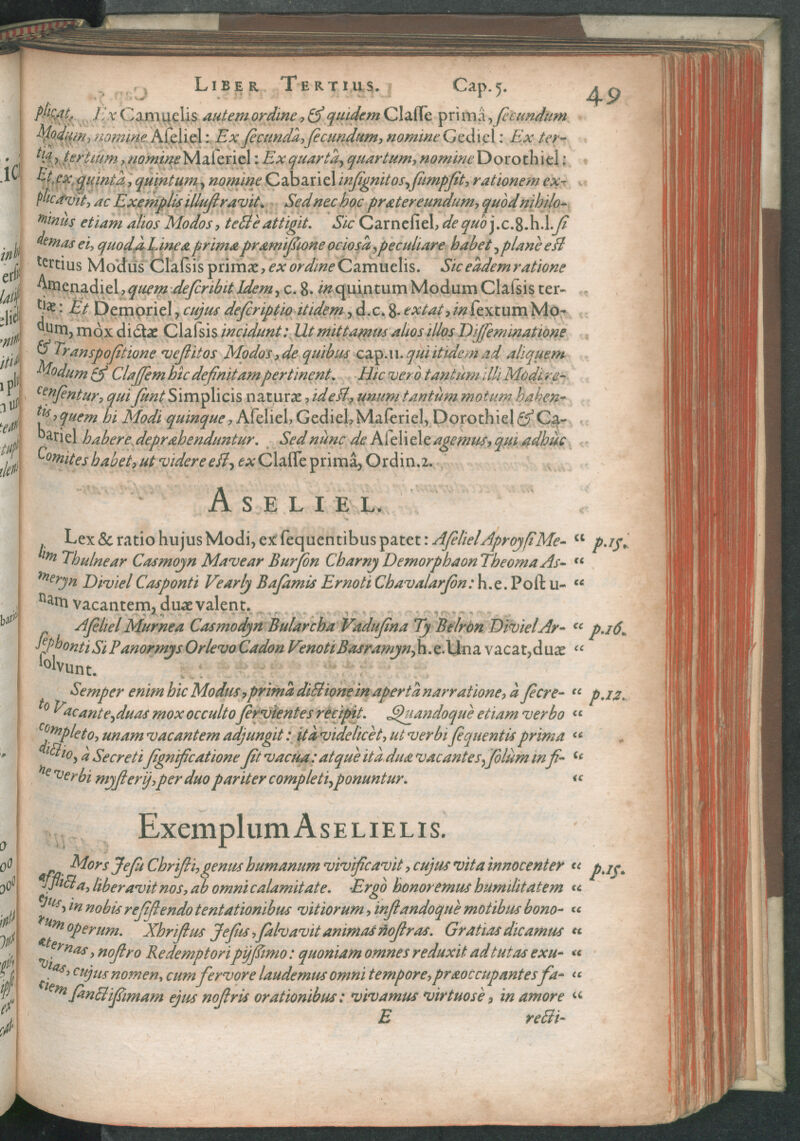 LIBER TERTIUS. Cap. 5. 49
plicat. Ex Camuelis autem ordine, & quidem Classe primâ, secundum
Modum, nomine Aseliel: Ex secundâ, secundum, nomine Gediel: Ex ter-
tiâ, tertium, nomine Maseriel: Ex quartâ, quartum, nomine Dorothiel:
Et ex quintâ, quintum, nomine Cabariel insignitos, sumpsit, rationem ex-
plicavit, ac Exemplis illustravit. Sed nec hoc prætereundum, quòd nihilo-
minus etiam alios Modos, tectè attigit. Sic Carnesiel, de quo j.c.8.h.l. si
demas ei, quod à Lineæ primæ præmissione ociosa, peculiare habet, planè est
tertius Modus Classis primæ, ex ordine Camuelis. Sic eâdem ratione
Amenadiel, quem describit Idem, c. 8. in quintum Modum Classis ter-
tiæ: Et Demoriel, cujus descriptio itidem, d.c. 8. extat, in sextum Mo-
dum, mòx dictæ Classis incidunt: Ut mittamus alios illos Disseminatione
& Transpositione vestitos Modos, de quibus cap.11. qui itidem ad aliquem
Modum & Classem hîc definitam pertinent. Hîc verò tantùm illi Modi re-
censentur, qui sunt Simplicis naturæ, id est, unum tantùm motum haben-
tis, quem hi Modi quinque, Aseliel, Gediel, Maseriel, Dorothiel & Ca-
bariel habere depræhenduntur. Sed nùnc de Aseliele agemus, qui adhùc
Comites habet, ut videre est, ex Classe primâ, Ordin. 2.
ASELIEL.
Lex & ratio hujus Modi, ex sequentibus patet: Aseliel Aproysi Me- “ p.15.
lim Thulnear Casmoyn Mavear Burson Charny Demorphaon Theoma As- “
meryn Diviel Casponti Vearly Basamis Ernoti Chavalarson: h.e. Post u- “
nam vacantem, duæ valent.
Aseliel Murnea Casmodyn Bularcha Vadusina Ty Belron Diviel Ar- “ p.16.
sephonti Si Panormys Orlevo Cadon Venoti Basramyn, h.e. Una vacat, duæ “
solvunt.
Semper enim hic Modus, primâ dictione in apertâ narratione, à secre- “ p.12.
to Vacante, duas mox occulto servientes recipit. Quandoquè etiam verbo “
completo, unam vacantem adjungit: ità videlicèt, ut verbi sequentis prima “
dictio, à Secreti significatione sit vacua: atque ità duæ vacantes, solùm in fi- “
ne verbi mysterij, per duo pariter completi, ponuntur. “
Exemplum ASELIELIS.
Mors Jesu Christi, genus humanum vivificavit, cujus vita innocenter “ p.15.
afflicta, liberavit nos, ab omni calamitate. Ergò honoremus humilitatem “
ejus, in nobis resistendo tentationibus vitiorum, instandoquè motibus bono- “
rum operum. Xhristus Jesus, salvavit animas nostras. Gratias dicamus “
æternas, nostro Redemptori pijssimo: quoniam omnes reduxit ad tutas exu- “
vias, cujus nomen, cum fervore laudemus omni tempore, præoccupantes fa- “
ciem sanctissimam ejus nostris orationibus: vivamus virtuosè, in amore “
E recti-